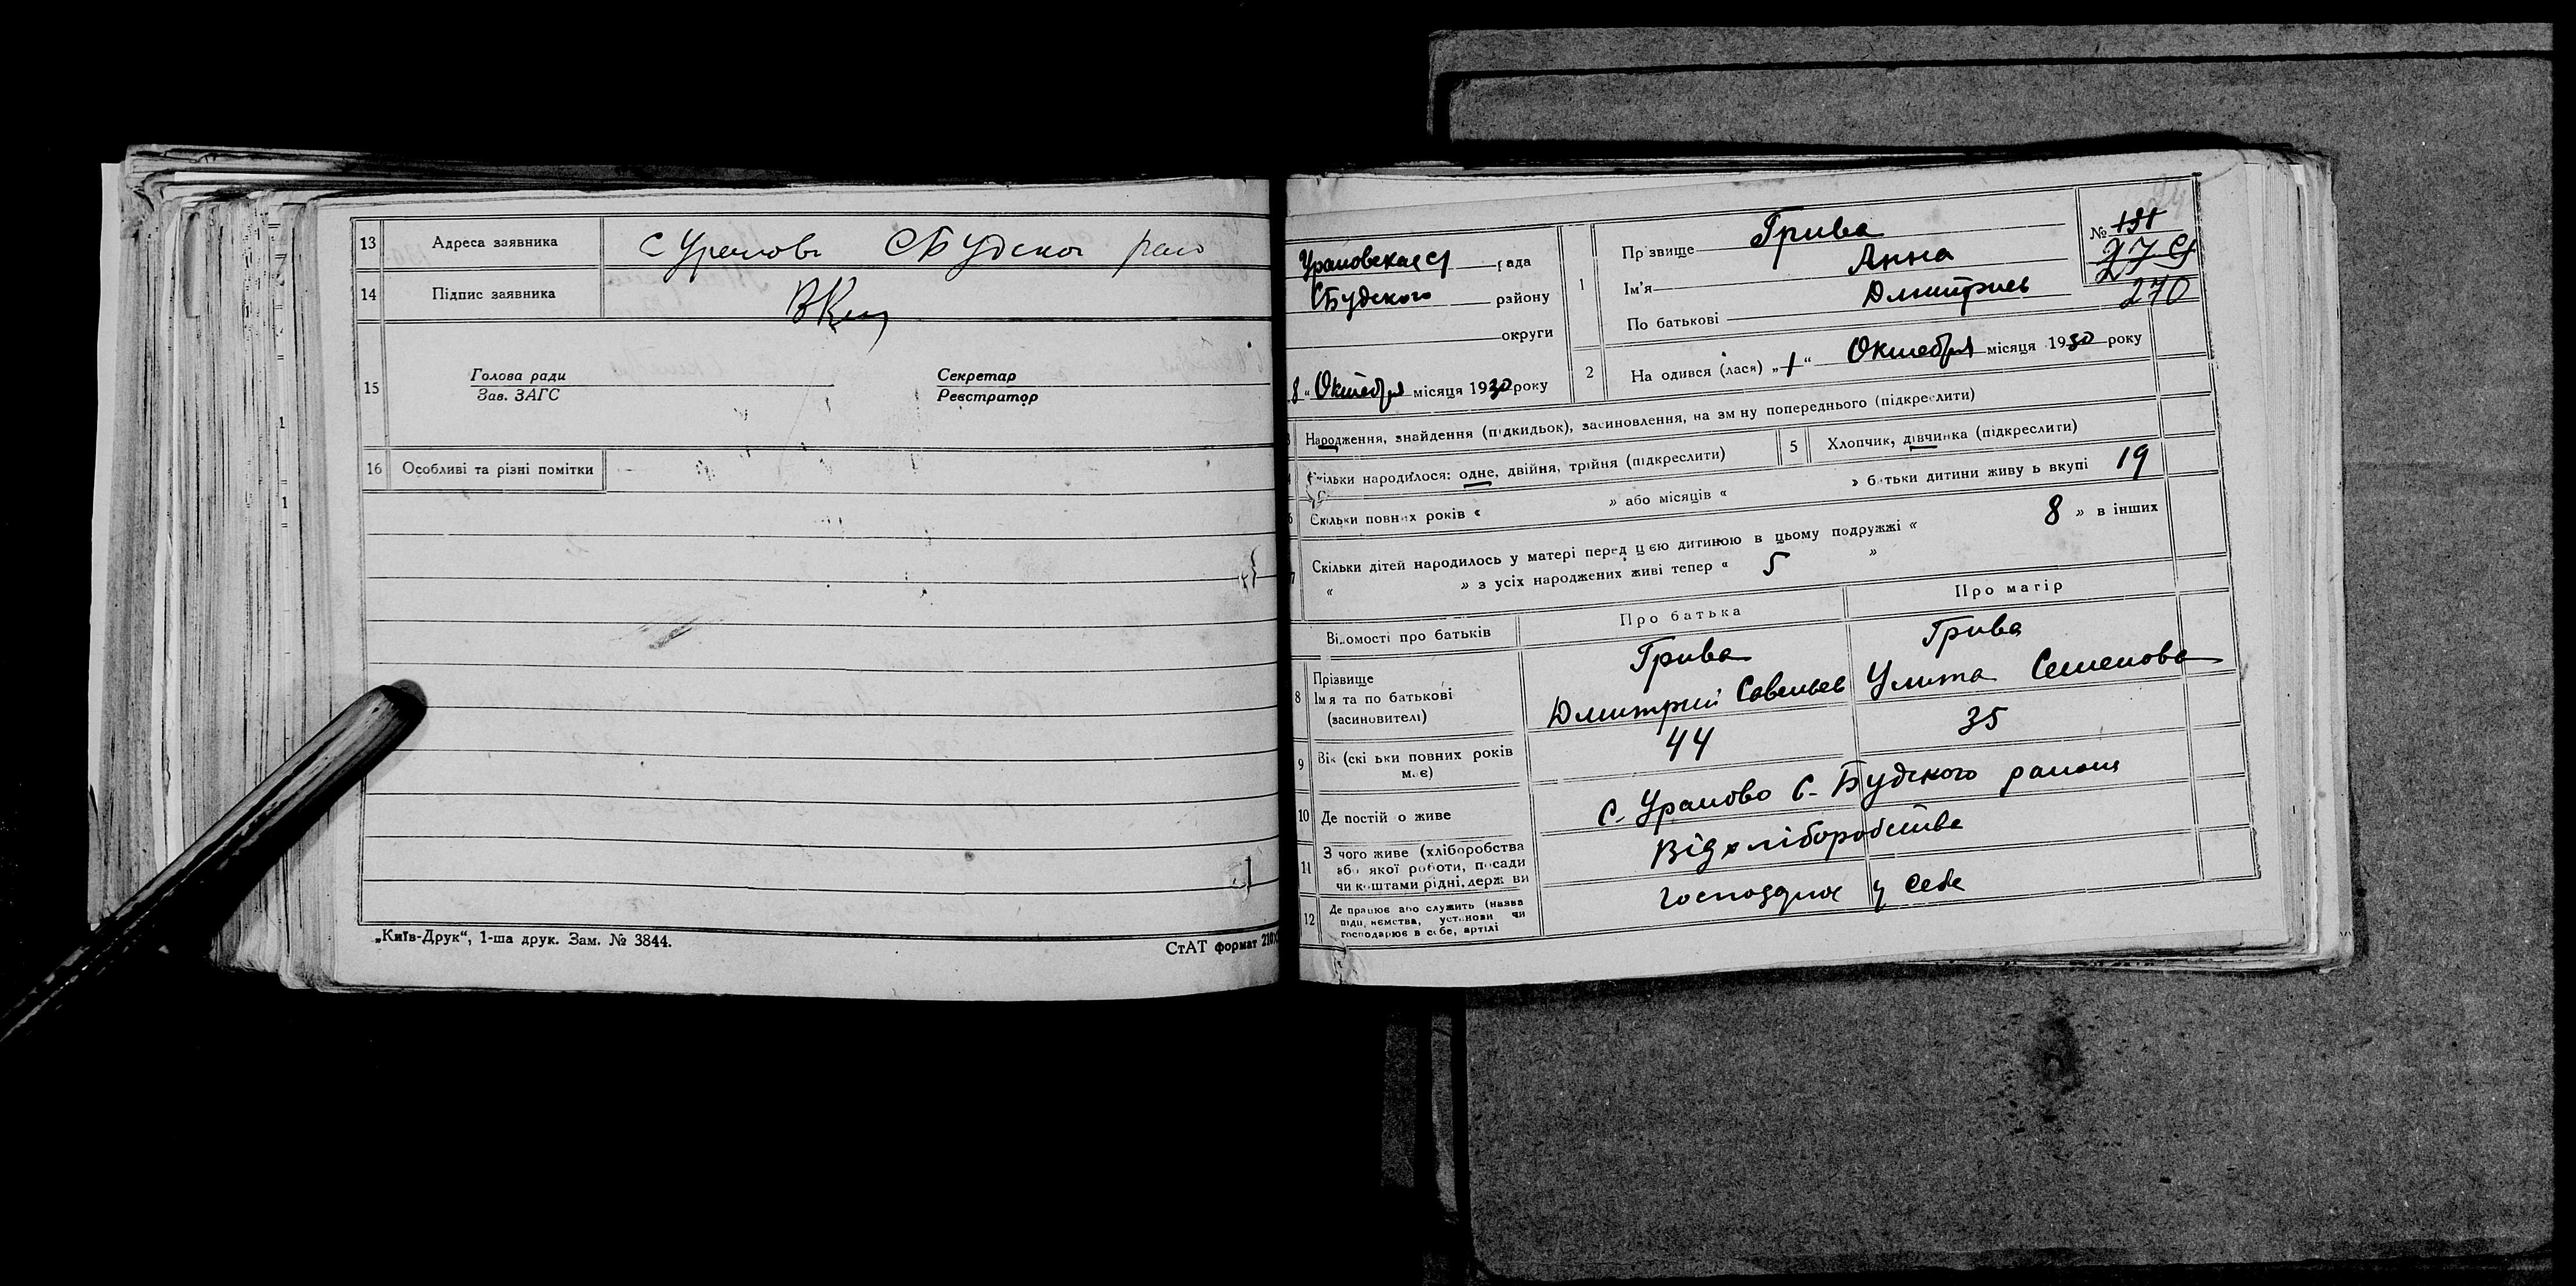 13 Адреса заявника с Урамова СБудског рано
14 Підпис заявника
15 Голова ради Секретар
Зав. ЗАГС Реєстратор
16 Особливі та різні помітки
„Київ-Друк“, 1-ша друк. Зам. № 3844.
СтАТ формат 210
Урамовская с/ рада
СБудского району
округи
8 “ Октября місяця 1930 року
1 Пр звище Грива
Ім’я Анна
По батькові Дмитриев
№ 191
270
2 На одився (лася) „ 1 “ Октября місяця 1930 року
Народження, знайдення (підкидьок), засиновлення, на зм ну попереднього (підкреслити)
Скільки народилося: одне, двійня, трійня (підкреслити)
5 Хлопчик, дівчинка (підкреслити)
6 Скільки повних років « » або місяців « » батьки дитини живу ь вкупі 19
7 Скільки дітей народилось у матері перед цією дитиною в цьому подружжі « 8 » в інших
« » з усіх народжених живі тепер « 5 »
Відомості про батьків Про батька Про матір
8 Прізвище Грива Грива
Імя та по батькові Дмитрий Савельев Улита Семенова
(засиновителі)
9 Вік (скі ьки повних років 44 35
має)
10 Де постій о живе с. Урамово С-Будского района
11 З чого живе (хліборобства Від хліборобства
або якої роботи, посади
чи коштами рідні, держ ви
12 Де працює або служить (назва господарює у себе
підп ємства, установи чи
господарює в себе, артілі